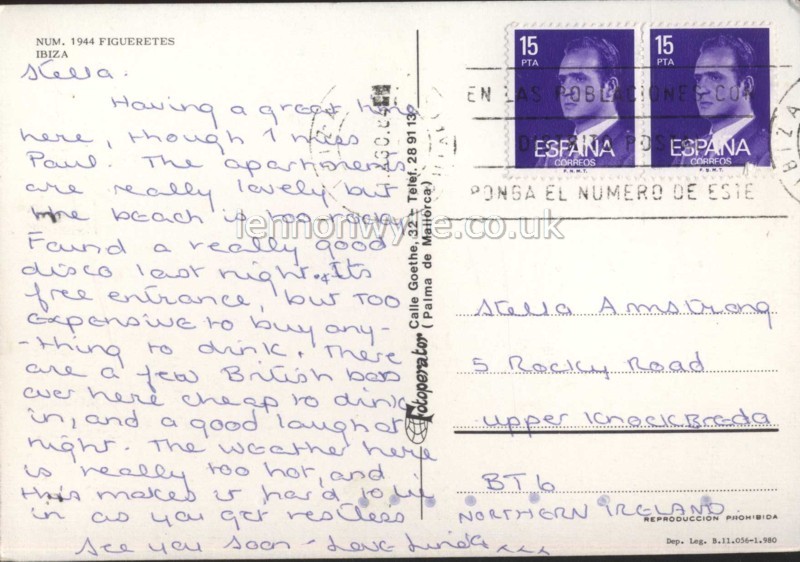 NUM. 1944 FIGUERETES
IBIZA
Stella.
Having a great time
here, though I miss
Paul. The apartments
are really lovely but
the beach is too rocky.
Found a really good
disco last night. Its
free entrance, but too
expensive to buy any-
-thing to drink. There
are a few British bars
over here cheap to drink
in, and a good laugh at
night. The weather here
is really too hot, and
this makes it hard to lie
in as you get restless
See you soon - Love Linda xxx
Fotoperator Calle Goethe, 32 - Telef. 28 91 13
(Palma de Mallorca)
15
PTA
ESPAÑA
CORREOS
F.N.M.T.
15
PTA
ESPAÑA
CORREOS
F.N.M.T.
EN LAS POBLACIONES CON
DISTRITO POSTAL
PONGA EL NUMERO DE ESTE
IBIZA
lennonwylie.co.uk
Stella Armstrong
5 Rocky Road
Upper Knockbreda
BT6
NORTHERN IRELAND
REPRODUCCION PROHIBIDA
Dep. Leg. B.11.056-1.980